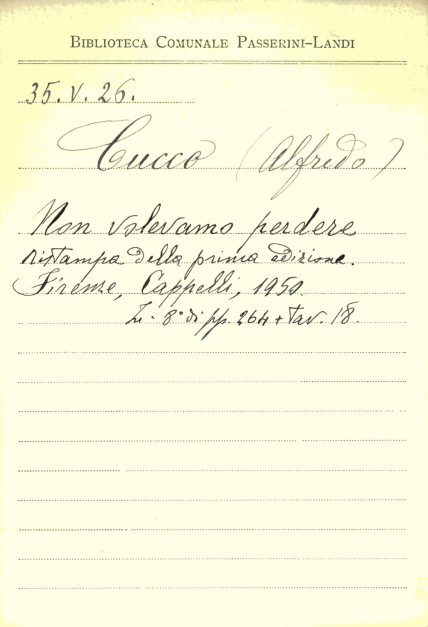 BIBLIOTECA COMUNALE PASSERINI-LANDI
35.V.26.
Cucco (Alfredo)
Non volevamo perdere
ristampa della prima edizione.
Firenze, Cappelli, 1950.
8° di pp. 264 + tav. 18.